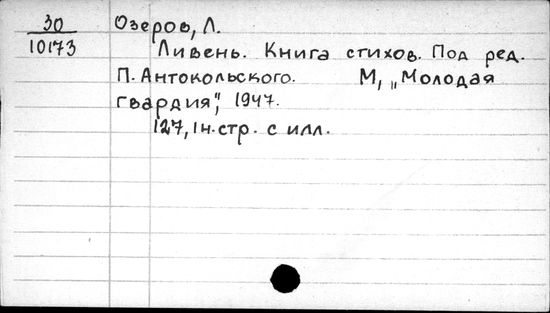 30
10173
Озеров, Л.
Ливень. Книга стихов. Под ред.
П. Антокольского. М, „Молодая
гвардия", 1947.
127, 1н.стр. с илл.